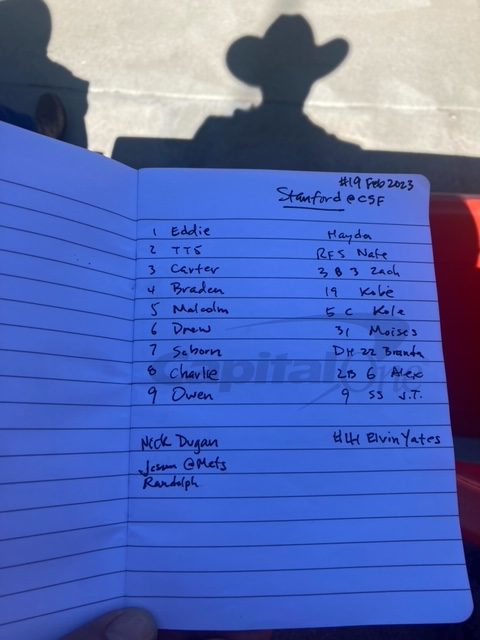 #19 Feb 2023
Stanford @ CSF
1 Eddie Hayden
2 TT5 RF5 Nate
3 Carter 3 B 3 Zach
4 Braden 19 Kobe
5 Malcolm 5 C Kole
6 Drew 31 Moises
7 Saborn DH 22 Brendan
8 Charlie 2B 6 Alex
9 Owen 9 SS J.T.
Capital One
Nick Dugan #41 Elvin Yates
@Mets
Randolph